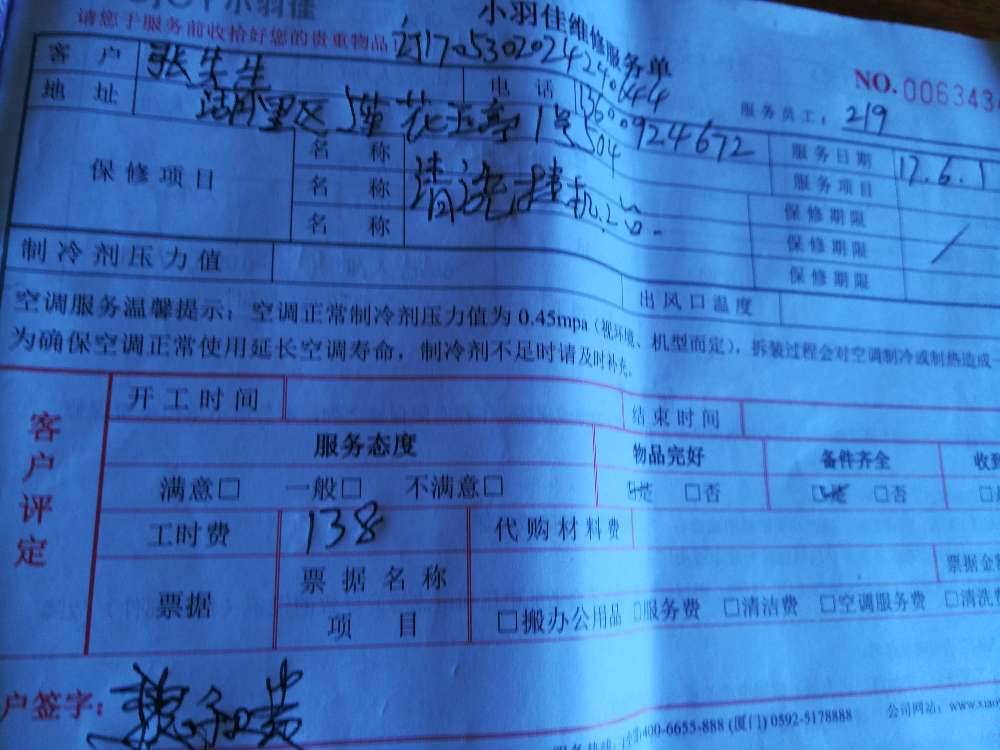 小羽佳
小羽佳维修服务单
请您于服务前收拾好您的贵重物品
NO. 006343
服务员工: 219
客 户 张先生 电 话 13600924672
地 址 湖里区 莲花 1号504 服务日期 17.6.1
保修项目 名 称 清洗挂机2台. 服务项目
名 称 保修期限
名 称 保修期限 /
保修期限
制冷剂压力值 出风口温度
空调服务温馨提示: 空调正常制冷剂压力值为 0.45mpa (视环境、机型而定), 拆装过程会对空调制冷或制热造成
为确保空调正常使用延长空调寿命, 制冷剂不足时请及时补充。
客户评定
开工时间 结束时间
服务态度 物品完好 备件齐全 收到
满意□ 一般□ 不满意□ □是 □否 □是 □否
工时费 138 代购材料费
票据 票据名称 票据金
项 目 □搬办公用品 □服务费 □清洁费 □空调服务费 □清洗
户签字:
服务热线: (全国)400-6655-888 (厦门) 0592-5178888 公司网站: www.xiao